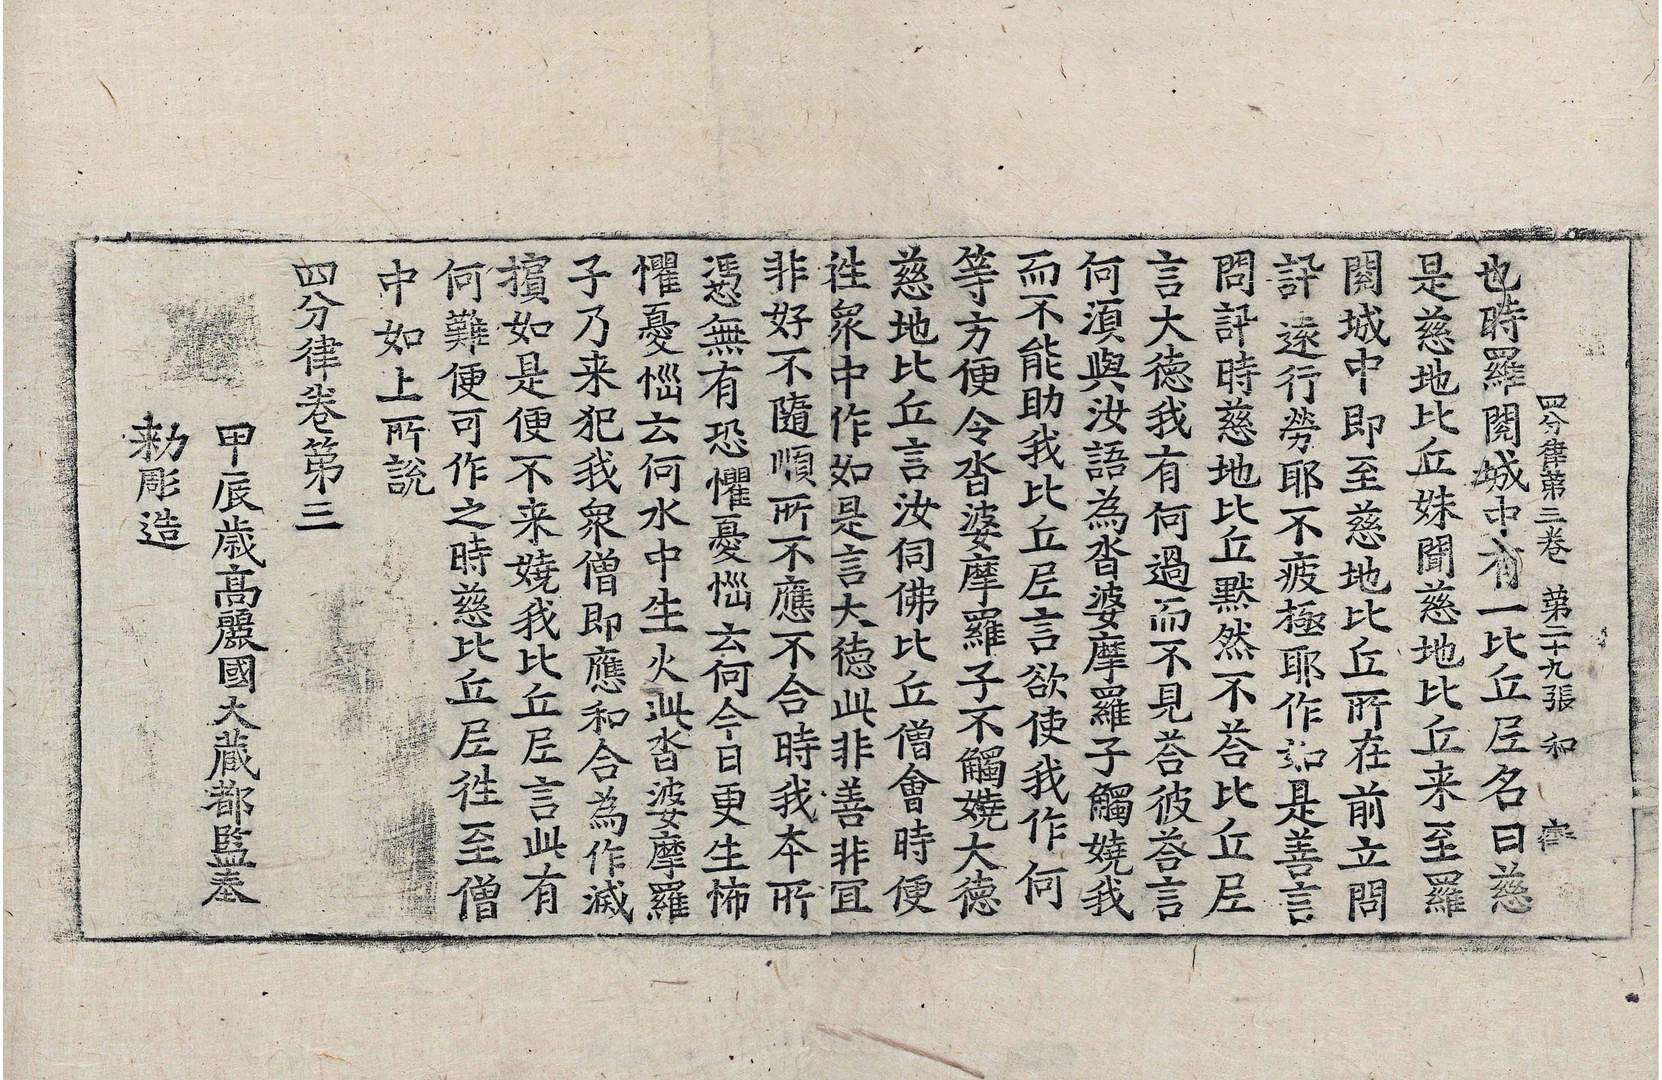 四分律第三卷 第二十九張 和 齊
也時羅閱城中有一比丘尼名曰慈
是慈地比丘妹聞慈地比丘来至羅
閱城中即至慈地比丘所在前立問
訊遠行勞耶不疲極耶作如是善言
問訊時慈地比丘默然不荅比丘尼
言大德我有何過而不見荅彼荅言
何湏與汝語為沓婆摩羅子觸嬈我
而不能助我比丘尼言欲使我作何
等方便令沓婆摩羅子不觸嬈大德
慈地比丘言汝伺佛比丘僧會時便
往衆中作如是言大德此非善非冝
非好不隨順所不應不合時我本所
憑恐無有恐懼憂惱云何今日更生怖
懼憂惱云何水中生火此沓婆摩羅
子乃来犯我衆僧即應和合為作滅
擯如是便不来嬈我比丘尼言此有
何難便可作之時慈比丘尼往至僧
中如上所說
四分律卷第三
甲辰歳高麗國大藏都監奉
勅彫造